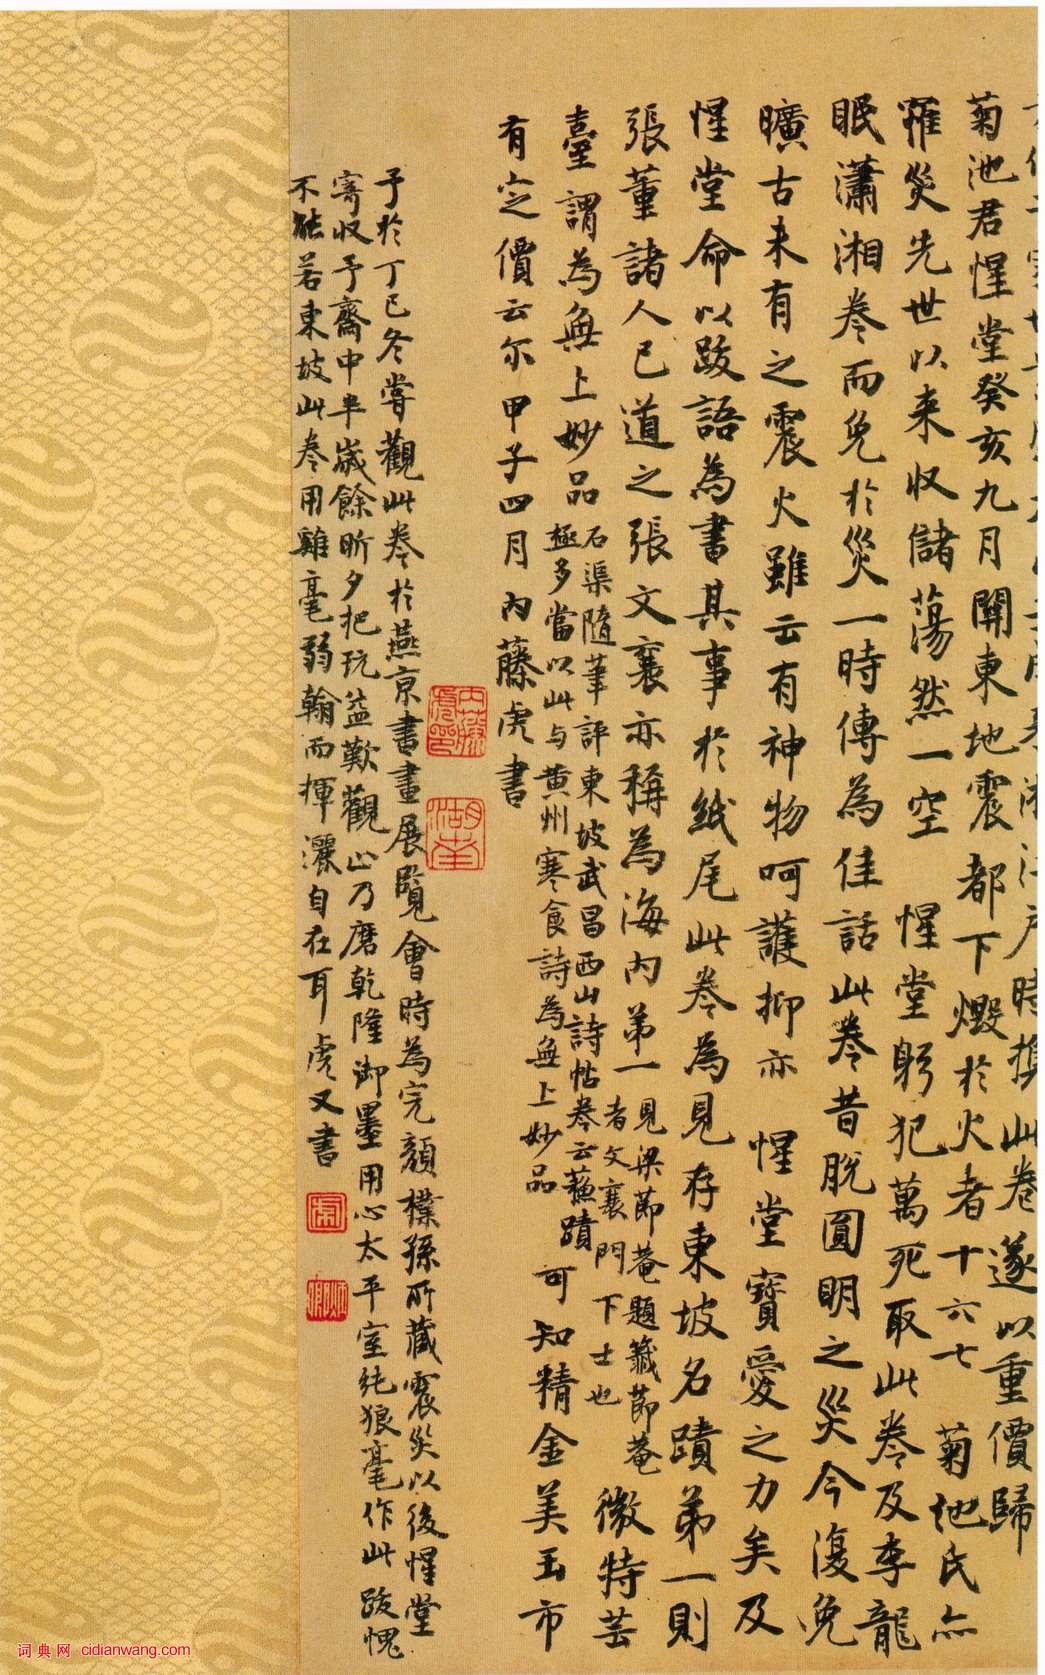 時攜此卷遂以重價歸
菊池君惺堂癸亥九月關東地震都下燬於火者十六七菊池氏亦
罹災先世以来收儲蕩然一空惺堂躬犯萬死取此卷及李龍
眠瀟湘卷而免於災一時傳為佳話此卷昔脫圓明之災今復免
曠古未有之震火雖云有神物呵護抑亦惺堂寶愛之力矣及
惺堂命以跋語為書其事於紙尾此卷為見存東坡名蹟第一則
張董諸人已道之張文襄亦稱為海內第一見梁節菴題籤節菴者文襄門下士也微特芸
臺謂為無上妙品石渠隨筆評東坡武昌西山詩帖卷云蘇蹟極多當以此与黄州寒食詩為無上妙品可知精金美玉市
有定價云尔甲子四月內藤虎書
內藤虎印
湖南
予於丁巳冬嘗觀此卷於燕京書畫展覽會時為完顏樸孫所藏震災以後惺堂
寄收予齋中半歲餘昕夕把玩益歎觀止乃磨乾隆御墨用心太平室純狼毫作此跋愧
不能若東坡此卷用雞毫弱翰而揮灑自在耳虎又書
词典网 cidianwang.com